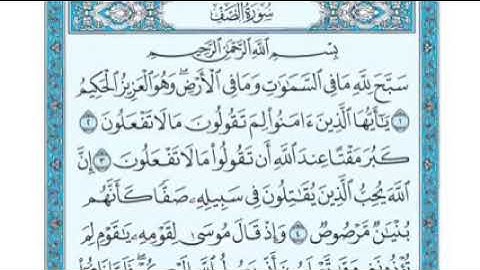 سُورَةُ الصَّفِّ
بِسْمِ اللَّهِ الرَّحْمَٰنِ الرَّحِيمِ
سَبَّحَ لِلَّهِ مَا فِي السَّمَٰوَٰتِ وَمَا فِي الْأَرْضِ ۖ وَهُوَ الْعَزِيزُ الْحَكِيمُ
١ يَٰٓأَيُّهَا الَّذِينَ ءَامَنُوا لِمَ تَقُولُونَ مَا لَا تَفْعَلُونَ ٢
كَبُرَ مَقْتًا عِندَ اللَّهِ أَن تَقُولُوا مَا لَا تَفْعَلُونَ ٣ إِنَّ
اللَّهَ يُحِبُّ الَّذِينَ يُقَٰتِلُونَ فِي سَبِيلِهِ صَفًّا كَأَنَّهُم
بُنْيَٰنٌ مَّرْصُوصٌ ٤ وَإِذْ قَالَ مُوسَىٰ لِقَوْمِهِ يَٰقَوْمِ لِمَ